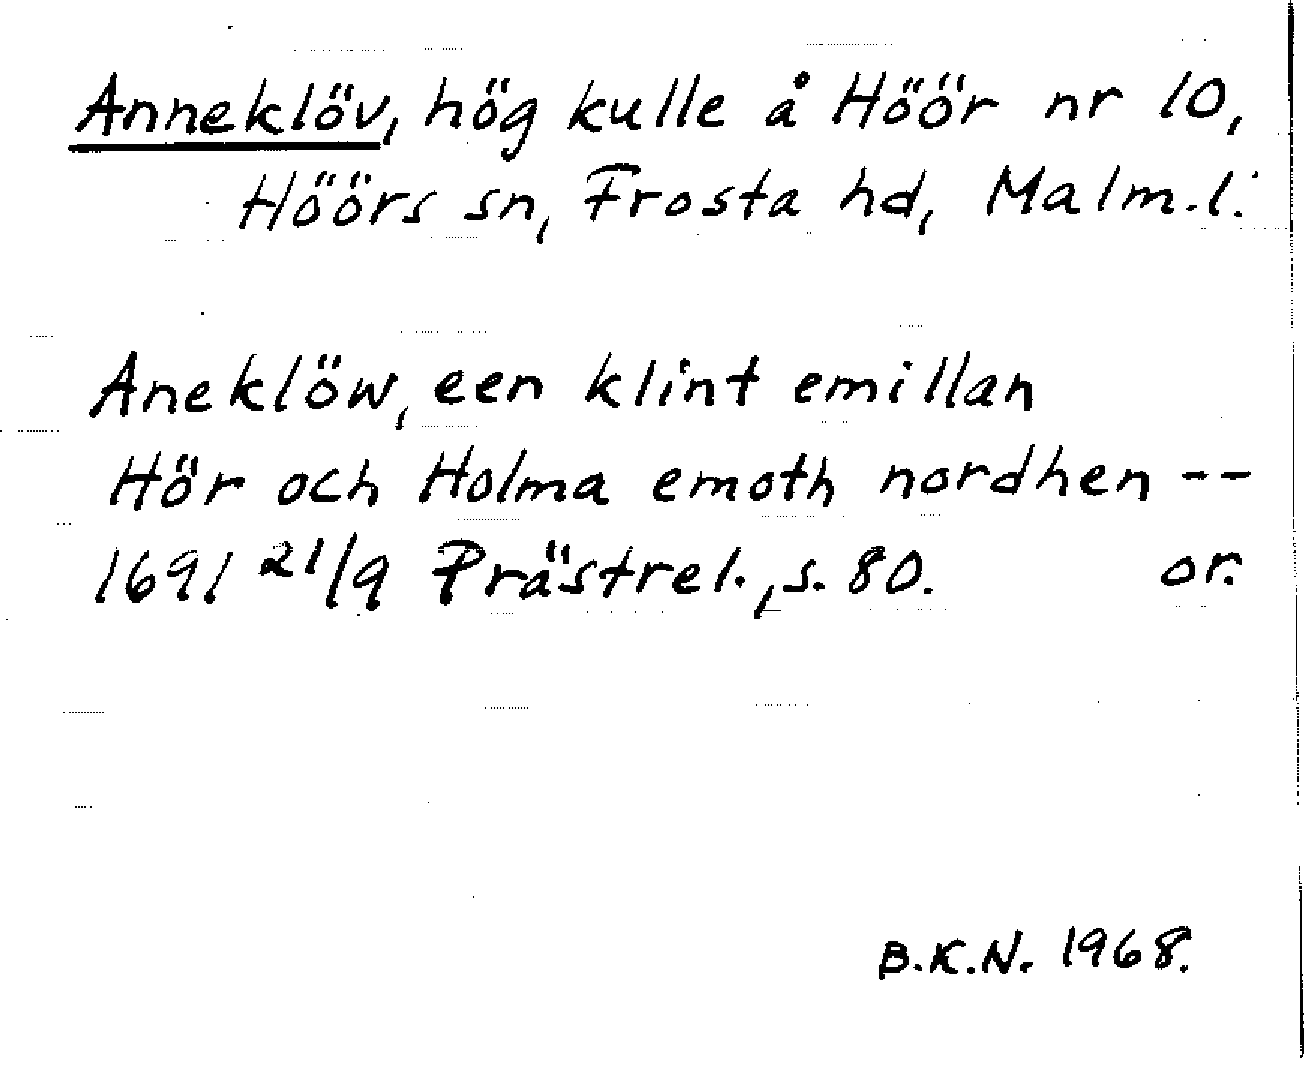 Anneklöv, hög kulle å Höör nr 10,
Höörs sn, Frosta hd, Malm.l.
Aneklöw, een klint emillan
Hör och Holma emoth nordhen --
1691 21/9 Prästrel., s. 80. or.
B.K.N. 1968.